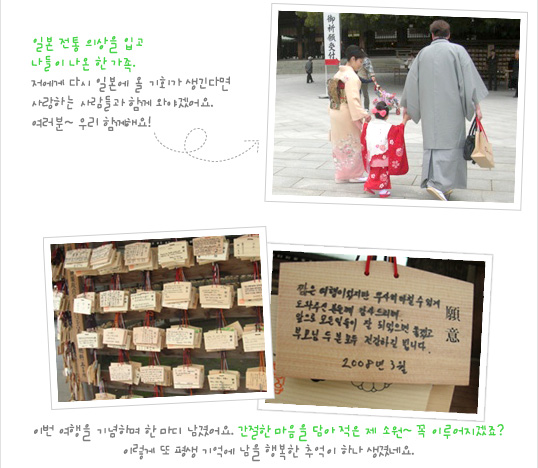 일본 전통 의상을 입고
나들이 나온 한 가족.
저에게 다시 일본에 올 기회가 생긴다면
사랑하는 사람들과 함께 와야겠어요.
여러분~ 우리 함께해요!
御祈願受付
짧은 여행이었지만 무사히 마칠 수 있게
도와주신 분들께 감사드리며
앞으로 모든 일들이 잘 되었으면 좋겠고
부모님 두 분 모두 건강하길 빕니다.
2008년 3월
願意
이번 여행을 기념하며 한 마디 남겼어요. 간절한 마음을 담아 적은 제 소원~ 꼭 이루어지겠죠?
이렇게 또 평생 기억에 남을 행복한 추억이 하나 생겼네요.